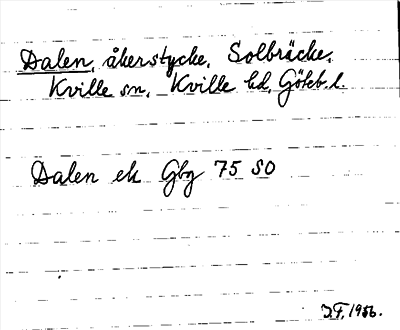 Dalen, åkerstycke, Solbräcke,
Kville sn, Kville hd, Göteb. l.
Dalen ek Gbg 75 SO
J.F. 1956.